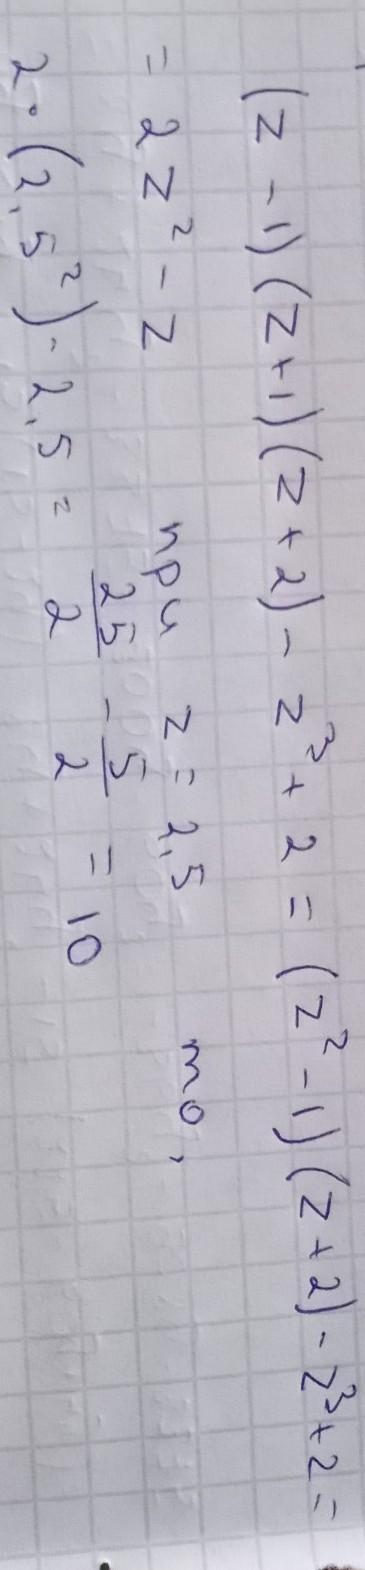 (z - 1)(z + 1)(z + 2) - z³ + 2 = (z² - 1)(z + 2) - z³ + 2 =
= 2z² - z при z = 2,5 то,
2 · (2,5²) - 2,5 = 25/2 - 5/2 = 10